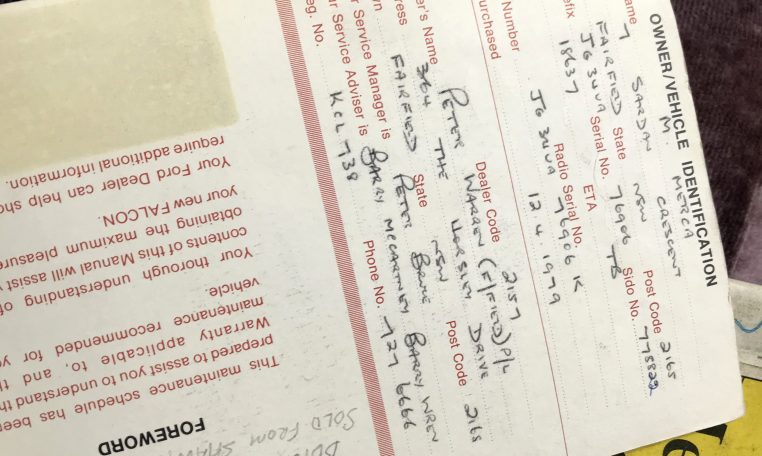 OWNER/VEHICLE IDENTIFICATION
ame M. MERCA
7 SARDAN CRESCENT
FAIRFIELD State NSW Post Code 2165
JG34UA Serial No. 76906 TB Sido No. 778822
efix ETA
18637 Radio Serial No. 76906 K
Number JG 34UA
urchased 12.4.1979
Dealer Code 2157
er's Name PETER WARREN (F/FIELD) P/L
ress 364 THE HORSLEY DRIVE
wn FAIRFIELD State NSW Post Code 2165
r Service Manager is PETER BRUCE
r Service Adviser is BARRY MCCARTNEY BARRY WREN
eg. No. KCL 738 Phone No. 727 6666
FOREWORD
This maintenance schedule has been
prepared to assist you to understand th
Warranty applicable to, and th
maintenance recommended for yo
vehicle.
Your thorough understanding of
contents of this Manual will assist y
obtaining the maximum pleasure
your new FALCON.
Your Ford Dealer can help sho
require additional information.
SOLD FROM